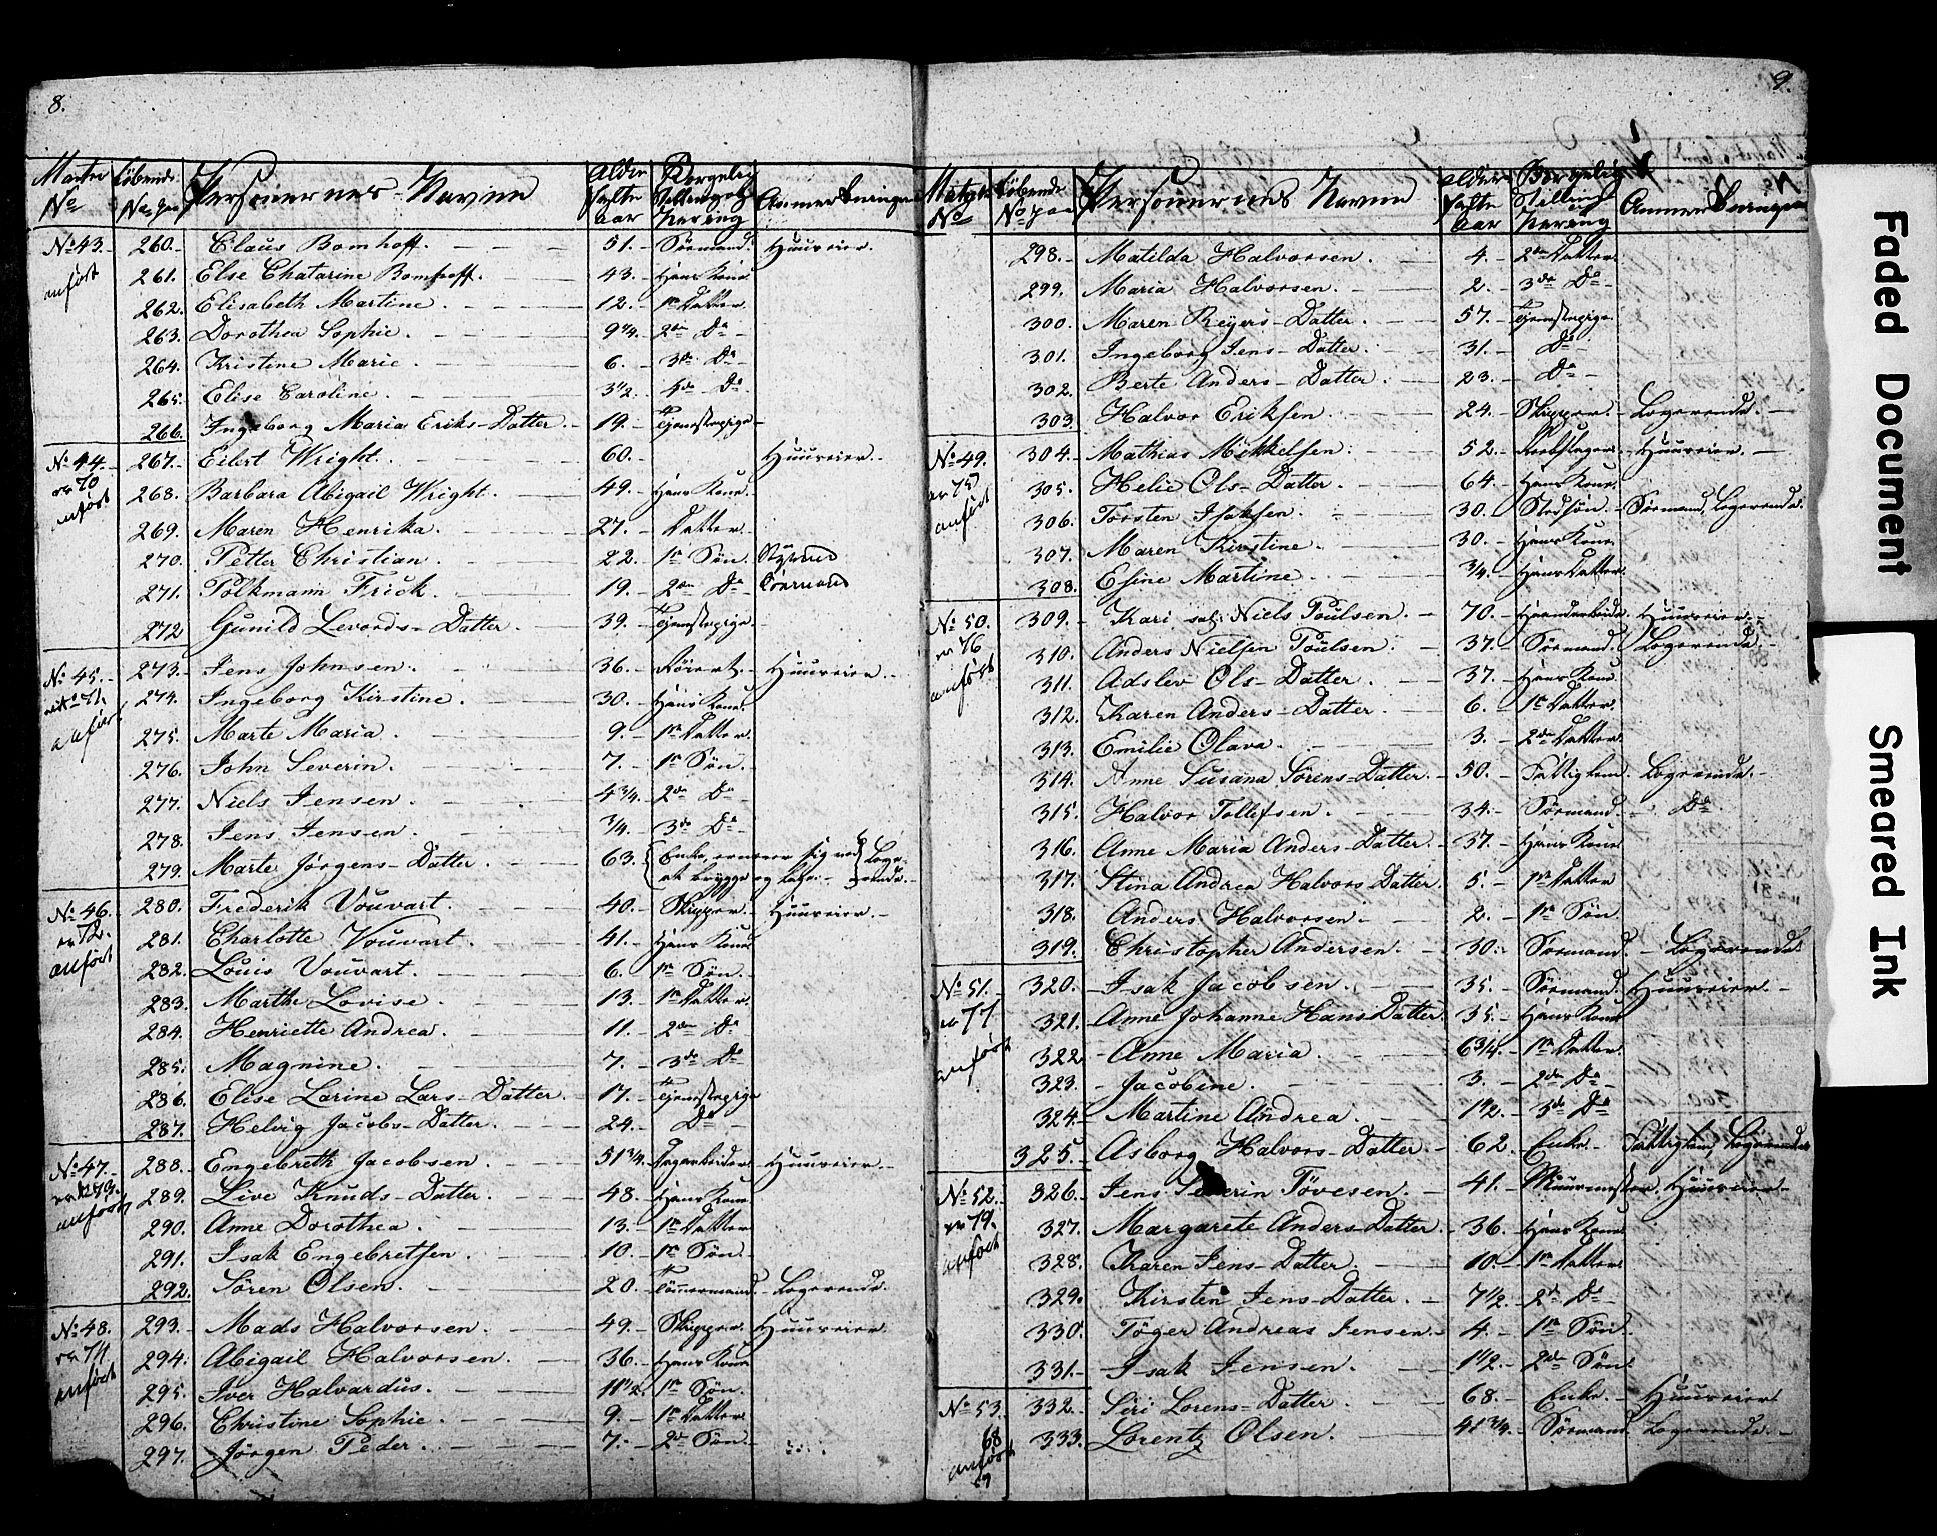 8.
No Personernes Navne
No 43. 260. Claus Bomhoff. 51. Sømand. Huuseier.
anført 261. Else Chatarine Bomhoff. 43. Hans Kone.
262. Elisabeth Martine. 12. 1ste Datter.
263. Dorothea Sophie. 9 1/4. 2den Do
264. Kristine Marie. 6. 3die Do
265. Elise Caroline. 3 1/2. 4de Do
266. Ingeborg Maria Eriks-Datter. 19. Tjenestepige
No 44. 267. Eilert Wright. 60. Huuseier.
70 anført 268. Barbara Abigail Wright. 49. Hans Kone.
269. Maren Henrika. 27. Datter.
270. Petter Christian. 22. 1ste Søn. Styrmand
271. Polkmann Frick. 19. 2den Do
272 Gunild Levords-Datter. 39. Tjenestepige
No 45. 273. Jens Johnsen. 36. Huuseier.
71. 274. Ingeborg Kirstine. 30. Hans Kone.
275. Marte Maria. 9. 1ste Datter.
276. John Severin. 7. 1ste Søn.
277. Niels Jensen. 4 3/4. 2den Do
278. Jens Jensen. 3/4. 3die Do
279. Marte Jørgens-Datter. 63. Enke, ernærer sig ved at brygge og bage. Logerende.
No 46. 280. Frederik Vouvart. 40. Skipper. Huuseier.
72. anført 281. Charlotte Vouvart. 41. Hans Kone
282. Louis Vouvart. 6. 1ste Søn.
283. Marthe Lovise. 13. 1ste Datter.
284. Henriette Andrea. 11. 2den Do
285. Magnine. 7. 3die Do
286. Elise Larine Lars-Datter. 17. Tjenestepige
287. Helvig Jacobs-Datter. 24. Do
No 47. 288. Engebreth Jacobsen. 51 3/4. Dagarbeider. Huuseier.
73. anført 289. Live Knuds-Datter. 48. Hans Kone
290. Anne Dorothea. 13. 1ste Datter
291. Isak Engebretsen. 10. 1ste Søn.
292. Søren Olsen. 20. Tømmermand. Logerende.
No 48. 293. Mads Halvorsen. 49. Skipper. Huuseier.
74 anført 294. Abigail Halvorsen. 36. Hans Kone
295. Iver Halvardus. 11 1/2. 1ste Søn.
296. Christine Sophie. 9. 1ste Datter
297. Jørgen Peder. 7. 2den Søn.
9.
No Personernes Navne
298. Matilda Halvorsen. 4. 2den Datter.
299. Maria Halvorsen. 2. 3die Do
300. Maren Reyers-Datter. 57. Tjenestepige.
301. Ingeborg Jens-Datter. 31. Do
302. Berte Anders-Datter. 23. Do
303. Halvor Eriksen. 24. Skipper. Logerende.
No 49. 304. Mathias Mikkelsen. 52. Rebslager. Huuseier.
75 anført 305. Helie Ols-Datter. 64. Hans Kone.
306. Torsten Isaksen. 30. Stedsøn. Sømand, Logerende.
307. Maren Kirstine. 30. Hans Kone.
308. Esine Martine. 3/4. Hans Datter.
No 50. 309. Kari sal: Niels Poulsen. 70. Haandarbeide. Huuseier.
76 anført 310. Anders Nielsen Poulsen. 37. Sømand. Logerende.
311. Adslev Ols-Datter. 37. Hans Kone
312. Karen Anders-Datter. 6. 1ste Datter.
313. Emilie Olava. 3. 2den Datter.
314. Anne Susana Sørens-Datter. 50. Fattiglem. Logerende.
315. Halvor Tollefsen. 34. Sømand. Do
316. Anne Maria Anders-Datter. 37. Hans Kone
317. Stina Andrea Halvors Datter. 5. 1ste Datter
318. Anders Halvorsen. 2. 1ste Søn
319. Christopher Andersen. 30. Sømand. Logerende.
No 51. 320. Isak Jacobsen. 35. Sømand. Huuseier.
77 anført 321. Anne Johanne Hans Datter. 35. Hans Kone
322. Anne Maria. 6 3/4. 1ste Datter.
323. Jacobine. 3. 2den Do
324. Martine Andrea. 1 1/2. 3die Do
325. Asborg Halvors-Datter. 62. Enke. Fattiglem, Logerende
No 52. 326. Jens Severin Tövesen. 41. Muurmester. Huuseier.
79. anført 327. Margarete Anders-Datter. 36. Hans Kone
328. Karen Jens-Datter. 10. 1ste Datter
329. Kirsten Jens-Datter. 7 1/2. 2den Do
330. Töger Andreas Jensen. 4. 1ste Søn
331. Isak Jensen. 1 1/2. 2den Søn.
No 53. 332. Siri Lorens-Datter. 68. Enke. Huuseier
68 anført 333. Lorentz Olsen. 41 3/4. Sømand. Logerende.
Faded Document
Smeared Ink